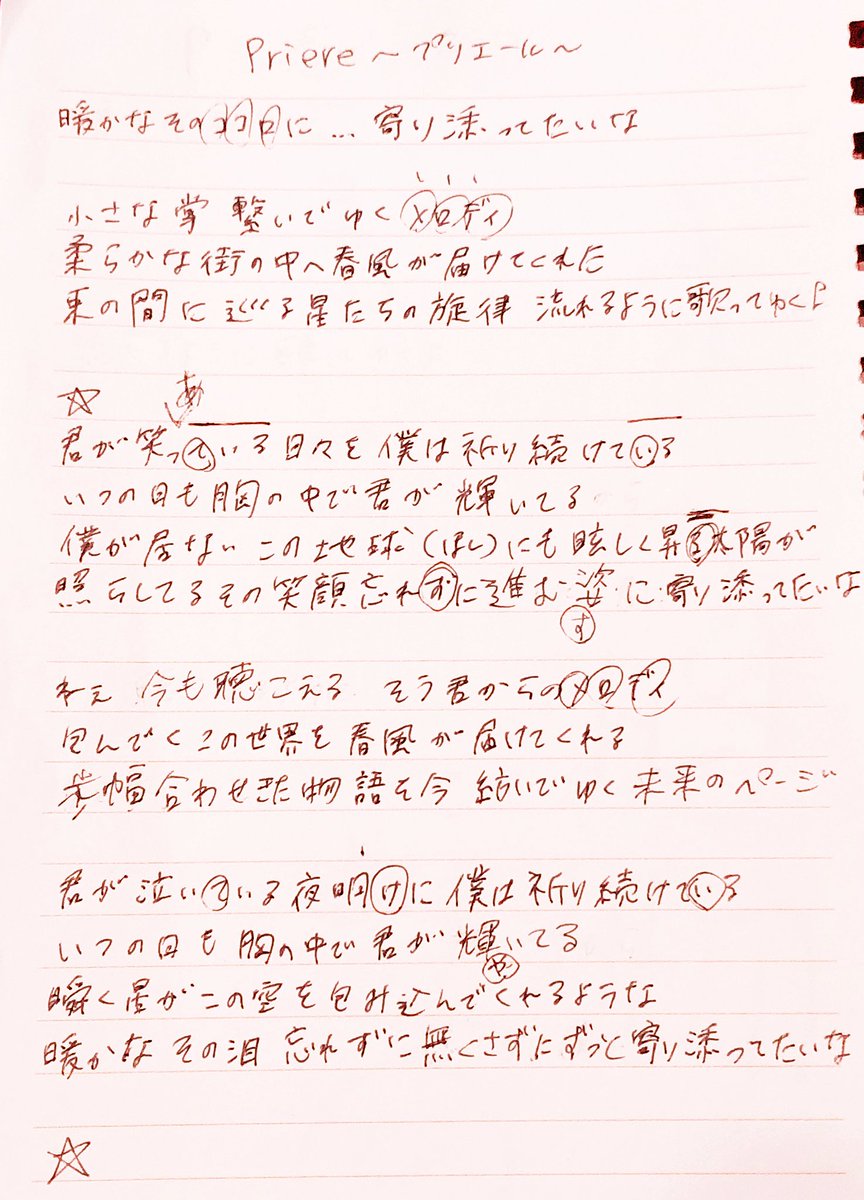 Priere～プリエール～
暖かなその羽に…寄り添ってたいな
小さな掌 繋いでゆくメロディ
柔らかな街の中へ春風が届けてくれた
の間に巡る星たちの旋律 流れるように歌ってゆくよ
☆
あ
君が笑っている日々を僕は祈り続けている
いつの日も胸の中で君が輝いてる
僕が居ない この地球(ほし)にも眩しく昇る太陽が
照らしてるその笑顔忘れずに進む姿に寄り添ってたいな
す
ねぇ 今も聴こえる そう君からのメロディ
包んでくこの世界を春風が届けてくれる
歩幅合わせきた物語を今 紡いでゆく未来のページ
君が泣いている夜明けに僕は祈り続けている
いつの日も胸の中で君が輝いてる
や
瞬く星がこの空を包み込んでくれるような
暖かな その泪 忘れずに無くさずにずっと寄り添ってたいな
☆